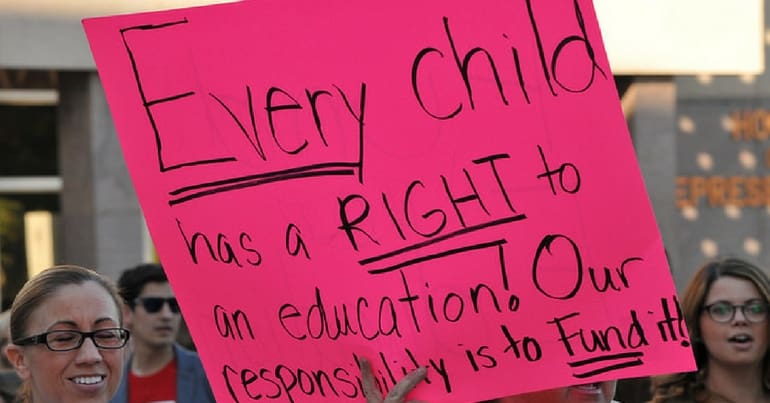 Every child
has a RIGHT to
an education! Our
responsibility is to Fund it!!
HO
EPRESE